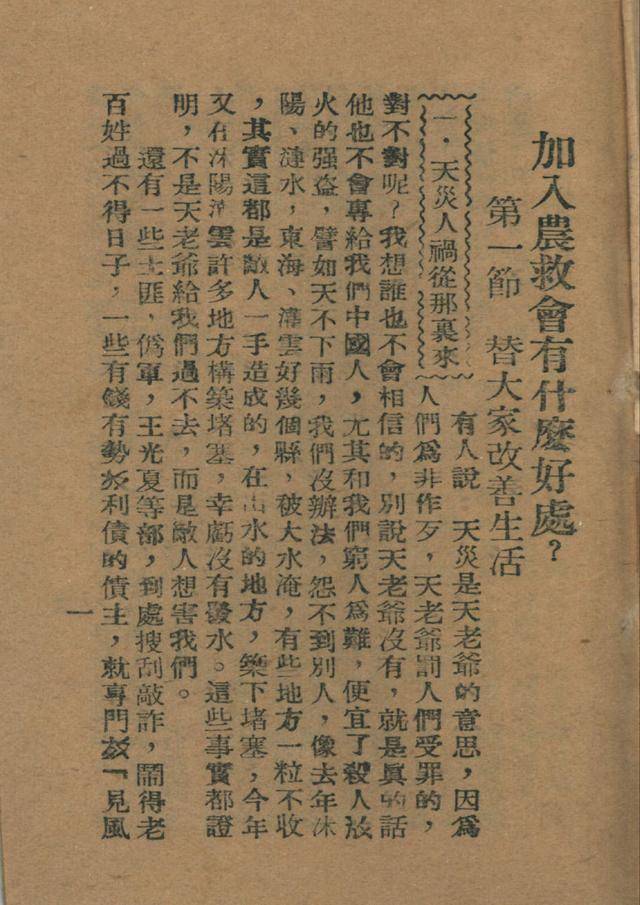 加入農救會有什麼好處?
第一節 替大家改善生活
一．天災人禍從那裏來
有人說 天災是天老爺的意思，因爲
人們爲非作歹，天老爺罰人們受罪的，
對不對呢?我想誰也不會相信的，别說天老爺沒有，就是眞的話
他也不會專給我們中國人，尤其和我們窮人爲難，便宜了殺人放
火的强盜，譬如天不下雨，我們沒辦法，怨不到別人，像去年沭
陽、漣水，東海、灌雲好幾個縣，被大水淹，有些地方一粒不收
，其實這都是敵人一手造成的，在出水的地方，築下堵塞，今年
又在沭陽灌雲許多地方構築堵塞，幸虧沒有發水。這些事實都證
明，不是天老爺給我們過不去，而是敵人想害我們。
還有一些土匪、僞軍，王光夏等部，到處搜刮敲詐，鬧得老
百姓過不得日子，一些有錢有勢放利債的債主，就專門放「見風
一